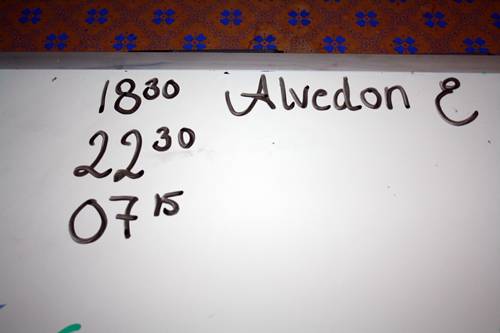 18 30 Alvedon E
22 30
07 15